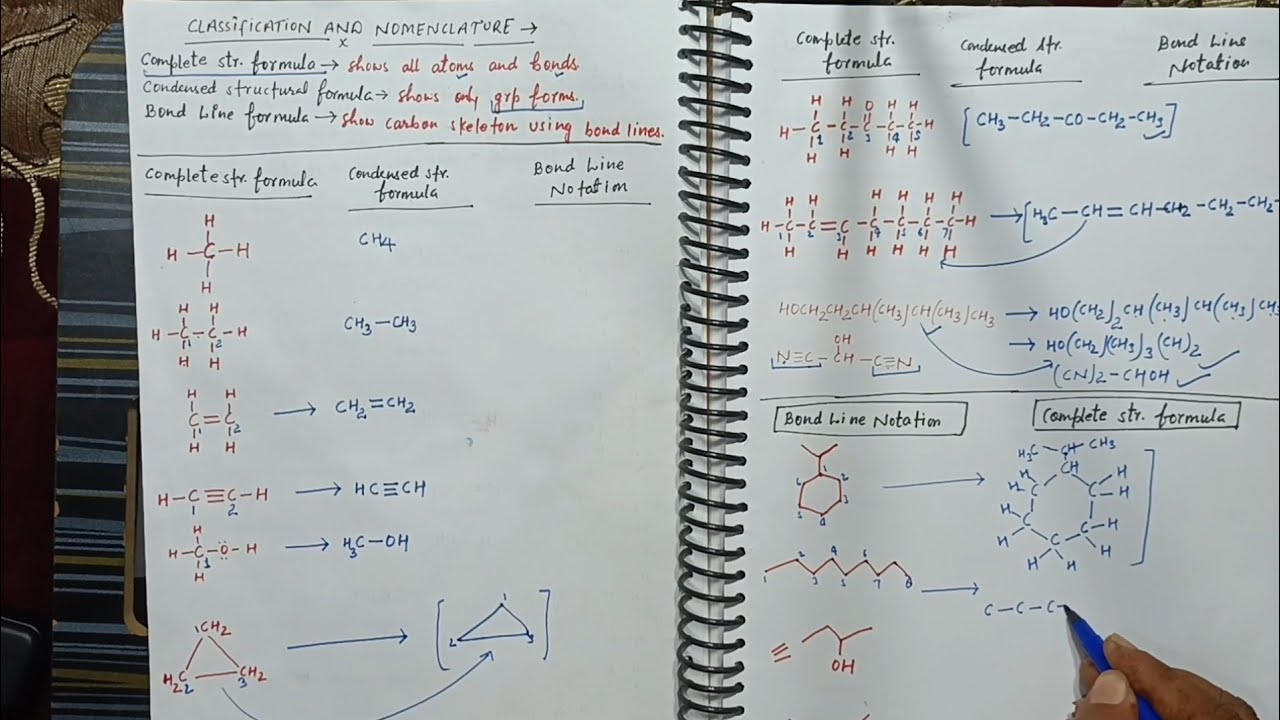 CLASSIFICATION AND NOMENCLATURE →
Complete str. formula → shows all atoms and bonds.
Condensed structural formula → shows only grp forms.
Bond Line formula → show carbon skeleton using bond lines.
Complete str. formula
Condensed str. formula
Bond Line Notation
H
H-C-H
H
CH4
H H
H-C-C-H
1 2
H H
CH3-CH3
H H
C=C
1 2
H H
→ CH2=CH2
H-C≡C-H → HC≡CH
1 2
H
H-C-O-H → H3C-OH
1
H
1CH2
H2C CH2
2 3
→
1
2 3
Complete str. formula
Condensed str. formula
Bond Line Notation
H H O H H
H-C-C-C-C-C-H
1 2 3 4 5
H H H H
[CH3-CH2-CO-CH2-CH3]
H H H H H H
H-C-C=C-C-C-C-C-H
1 2 3 4 5 6 7
H H H H H H
→ [H3C-CH=CH-CH2-CH2-CH2-
HOCH2CH2CH(CH3)CH(CH3)CH3 → HO(CH2)2CH(CH3)CH(CH3)CH3
→ HO(CH2)(CH3)3(CH)2
OH
N≡C-CH-C≡N
(CN)2-CHOH
Bond Line Notation
Complete str. formula
1 2 3 4
→
H3C-CH-CH3
CH
H H H
H H
H H
H H H
1 2 3 4 5 6 7 8
→
C-C-C-
OH